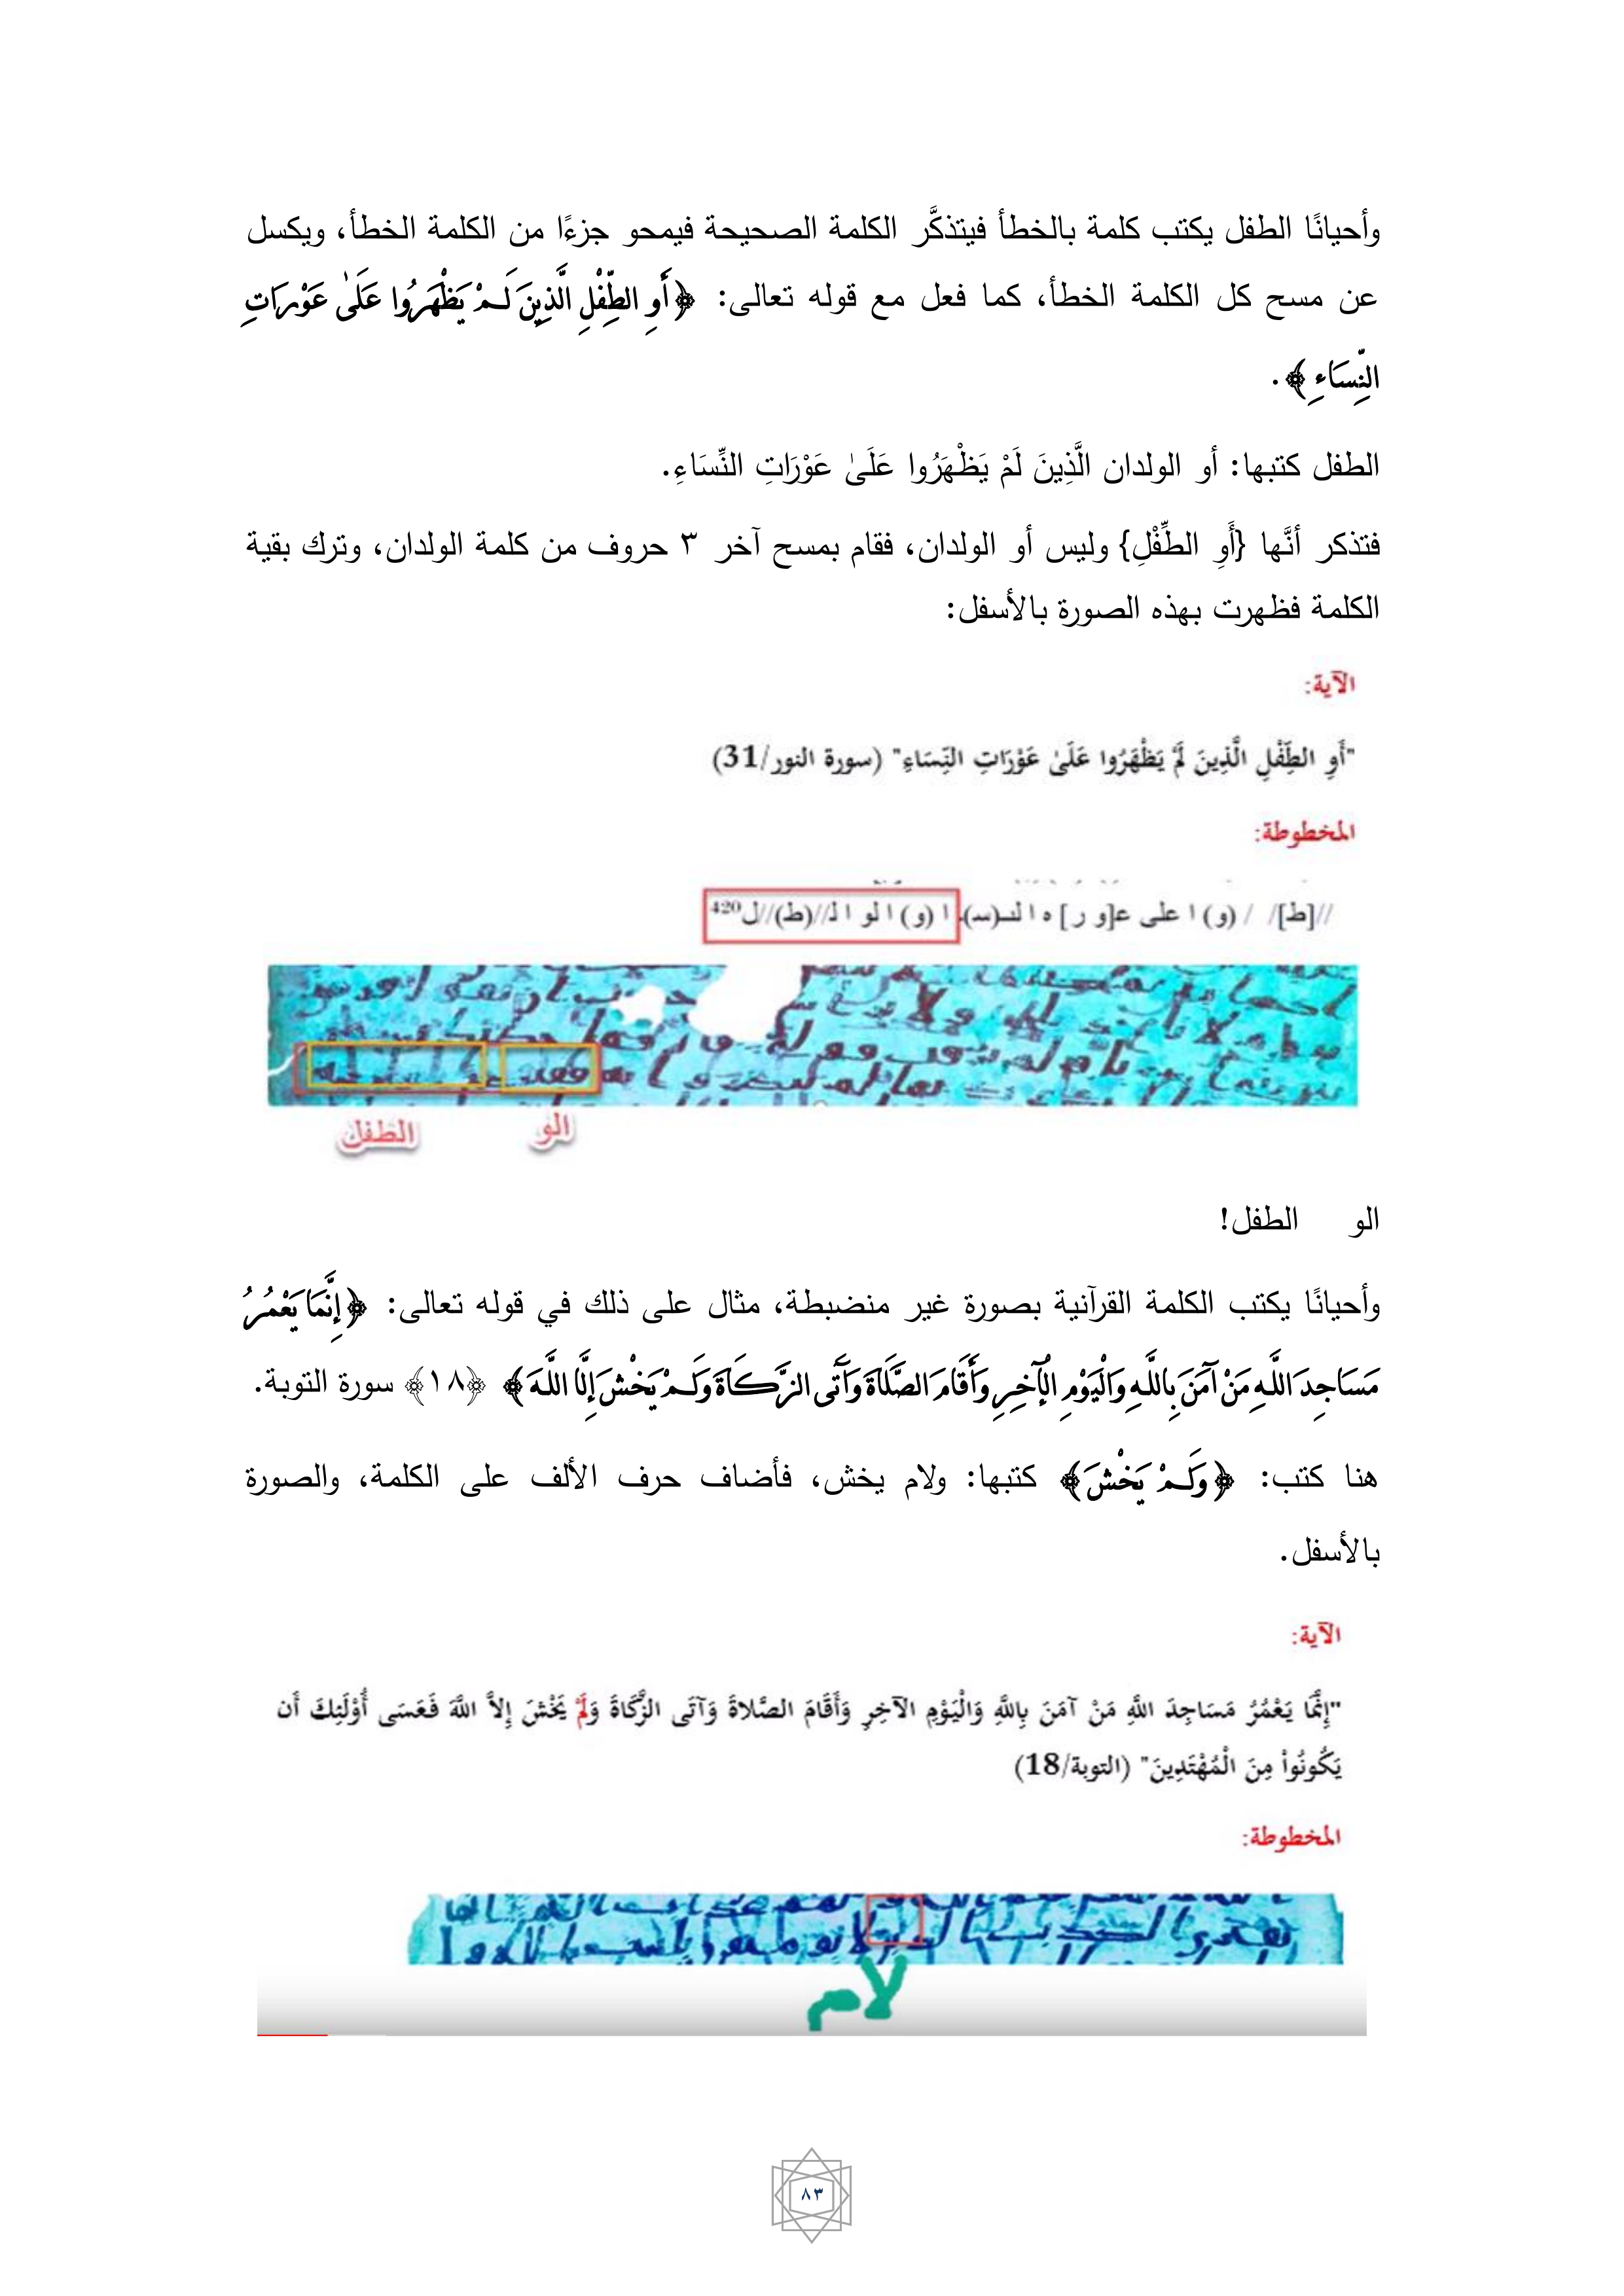 وأحيانًا الطفل يكتب كلمة بالخطأ فيتذكَّر الكلمة الصحيحة فيمحو جزءًا من الكلمة الخطأ، ويكسل
عن مسح كل الكلمة الخطأ، كما فعل مع قوله تعالى: ﴿أَوِ الطِّفْلِ الَّذِينَ لَمْ يَظْهَرُوا عَلَىٰ عَوْرَاتِ
النِّسَاءِ﴾.
الطفل كتبها: أو الولدان الَّذِينَ لَمْ يَظْهَرُوا عَلَىٰ عَوْرَاتِ النِّسَاءِ.
فتذكر أنَّها {أَوِ الطِّفْلِ} وليس أو الولدان، فقام بمسح آخر ٣ حروف من كلمة الولدان، وترك بقية
الكلمة فظهرت بهذه الصورة بالأسفل:
الآية:
"أَوِ الطِّفْلِ الَّذِينَ لَمْ يَظْهَرُوا عَلَىٰ عَوْرَاتِ النِّسَاءِ" (سورة النور/31)
المخطوطة:
//[ط]/ / (و) ا على عـ[و ر] ه ا لنسـ(سـ) ا (و) ا لو ا لـ//(ط)//ل420
الو الطفل
الو الطفل!
وأحيانًا يكتب الكلمة القرآنية بصورة غير منضبطة، مثال على ذلك في قوله تعالى: ﴿إِنَّمَا يَعْمُرُ
مَسَاجِدَ اللَّهِ مَنْ آمَنَ بِاللَّهِ وَالْيَوْمِ الْآخِرِ وَأَقَامَ الصَّلَاةَ وَآتَى الزَّكَاةَ وَلَمْ يَخْشَ إِلَّا اللَّهَ﴾ ﴿١٨﴾ سورة التوبة.
هنا كتب: ﴿وَلَمْ يَخْشَ﴾ كتبها: ولام يخش، فأضاف حرف الألف على الكلمة، والصورة
بالأسفل.
الآية:
"إِنَّمَا يَعْمُرُ مَسَاجِدَ اللَّهِ مَنْ آمَنَ بِاللَّهِ وَالْيَوْمِ الآخِرِ وَأَقَامَ الصَّلاةَ وَآتَى الزَّكَاةَ وَلَمْ يَخْشَ إِلاَّ اللَّهَ فَعَسَى أُوْلَئِكَ أَن
يَكُونُواْ مِنَ الْمُهْتَدِينَ" (التوبة/18)
المخطوطة:
لام
٨٣